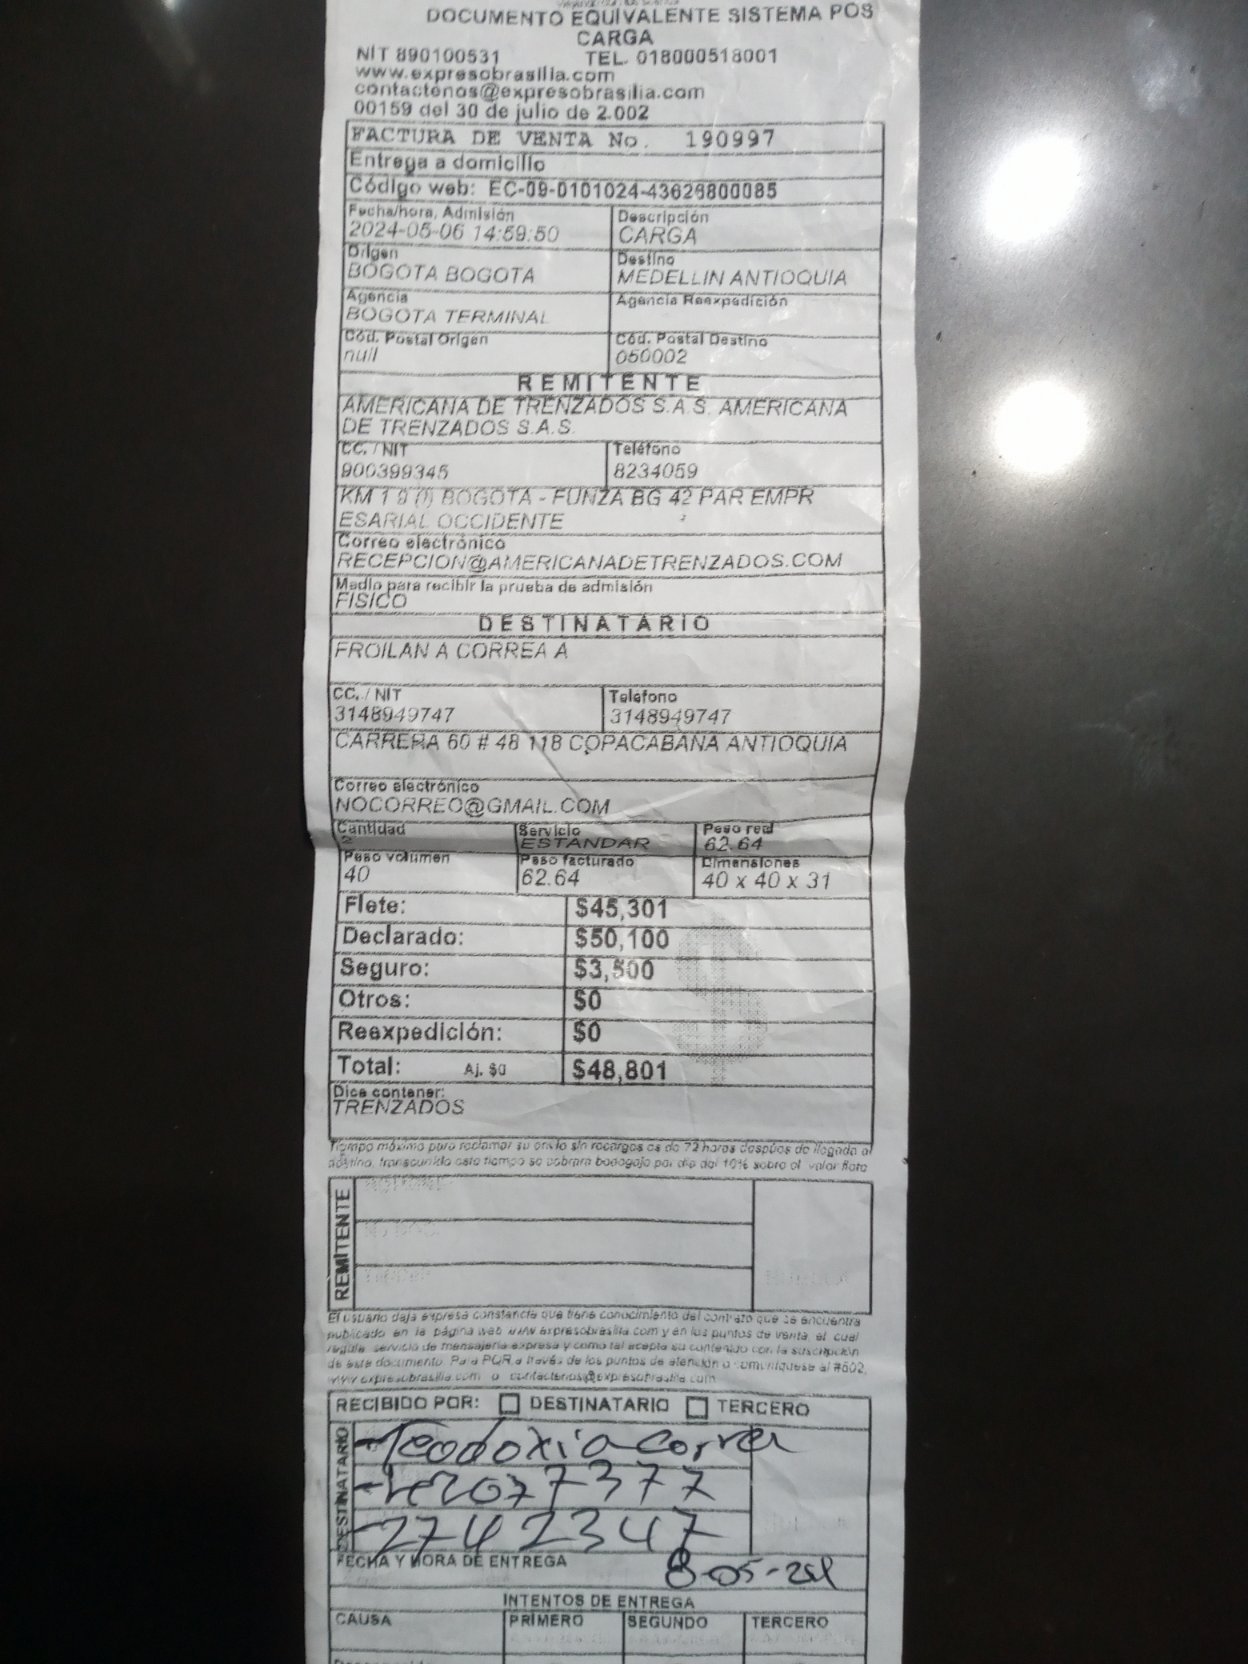 DOCUMENTO EQUIVALENTE SISTEMA POS
CARGA
NIT 890100531 TEL. 018000518001
www.expresobrasilia.com
contactenos@expresobrasilia.com
00159 del 30 de julio de 2.002
FACTURA DE VENTA No. 190997
Entrega a domicilio
Código web: EC-09-0101024-43626800085
Fecha/hora, Admisión Descripción
2024-05-06 14:59:50 CARGA
Origen Destino
BOGOTA BOGOTA MEDELLIN ANTIOQUIA
Agencia Agencia Reexpedición
BOGOTA TERMINAL
Cód. Postal Origen Cód. Postal Destino
null 050002
REMITENTE
AMERICANA DE TRENZADOS S.A.S. AMERICANA
DE TRENZADOS S.A.S.
CC. / NIT Teléfono
900399345 8234059
KM 1 9 BOGOTA - FUNZA BG 42 PAR EMPR
ESARIAL OCCIDENTE
Correo electrónico
RECEPCION@AMERICANADETRENZADOS.COM
Medio para recibir la prueba de admisión
FISICO
DESTINATARIO
FROILAN A CORREA A
CC. / NIT Teléfono
3148949747 3148949747
CARRERA 60 # 48 118 COPACABANA ANTIOQUIA
Correo electrónico
NOCORREO@GMAIL.COM
Cantidad Servicio Peso real
2 ESTANDAR 62.64
Peso volumen Peso facturado Dimensiones
40 62.64 40 x 40 x 31
Flete: $45,301
Declarado: $50,100
Seguro: $3,500
Otros: $0
Reexpedición: $0
Total: Aj. $0 $48,801
Dice contener:
TRENZADOS
Tiempo máximo para reclamar su envío sin recargos es de 72 horas después de llegada al
destino, transcurrido este tiempo se cobrara bodegaje por día del 10% sobre el valor flete
REMITENTE
El usuario deja expresa constancia que tiene conocimiento del contrato que se encuentra
publicado en la página web www.expresobrasilia.com y en los puntos de venta, el cual
regula servicio de mensajería expresa y como tal acepta su contenido con la suscripción
de este documento. Para PQR a través de los puntos de atención o comuníquese al #602,
www.expresobrasilia.com o contactenos@expresobrasilia.com
RECIBIDO POR: DESTINATARIO TERCERO
DESTINATARIO
Teodoxia Correa
2077377
2742347
FECHA Y HORA DE ENTREGA 8-05-24
INTENTOS DE ENTREGA
CAUSA PRIMERO SEGUNDO TERCERO